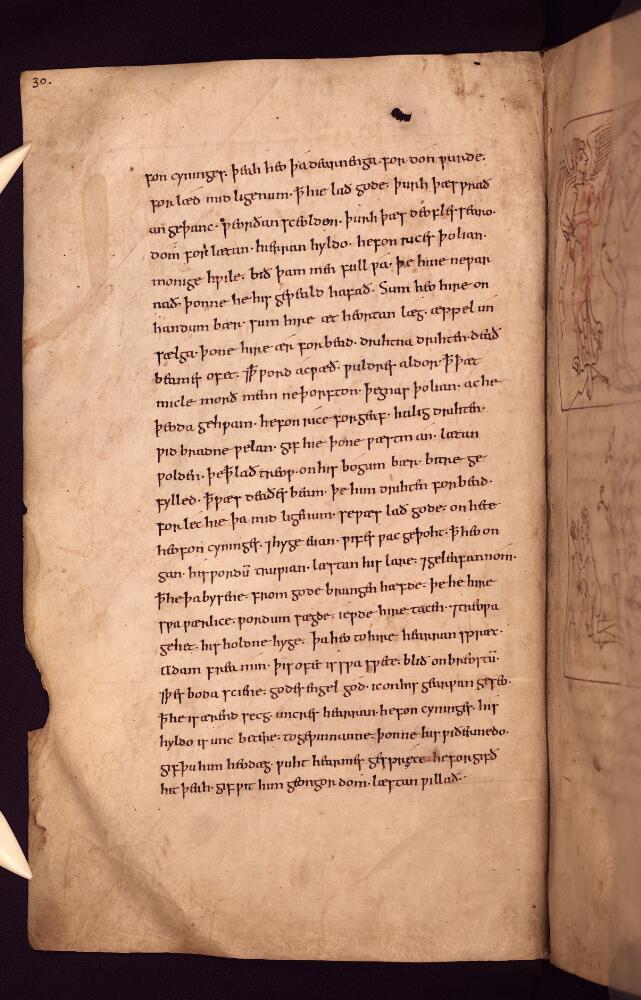 30.
fon cyninges. þeah heo þa dearnenga. for don wurde.
forlæd mid ligenum. ꝥ hie lað gode. þurh þæs wrað
an geþanc. weorðan sceolden. þurh þæs deofles searo.
dom forlætan. hierran hyldo. hefon rices þolian.
monige hwile. bið þam men full wa. þe hine ne war
nað. þonne he his geweald hafað. Sum heo hire on
handum bær. sum hire æt heortan læg. æppel un
sælga. þone hire ær forbead. drihtna drihten. deað
beames ofet. ⁊ ꝥ word acwæð. wuldres aldor. ꝥ þæt
micle morð menn ne þorfton. þegnas þolian. ac he
þeoda gehwam. hefon rice forgeaf. halig drihten.
wid bradne welan. gif hie þone wæstm an. lætan
wolden. þe ꝥ lað treow. on his bogum bær. bitre ge
fylled. ꝥ wæs deaðes beam. þe him drihten forbead.
forlec hie þa mid ligenum. se wæs lað gode. on hete
heofon cyninges. ⁊ hyge euan. wifes wac geþoht. ꝥ heo on
gan. his wordū truwian. læstan his lare. ⁊ geleafan nom.
ꝥ he þa bysene. from gode brungen hæfde. þe he hire
swa wærlice. wordum sægde. iewde hire tacen. ⁊ treowa
gehet. his holdne hyge. þa heo to hire hearran spræc.
Adam frea min. þis ofet is swa swete. blið on breostū.
⁊ þes boda sciene. godes engel god. ic on his gearwan geseo.
ꝥ he is ærend secg. uncres hearran. hefon cyninges. his
hyldo is unc betere. to gewinnanne. þonne his wiðermedo.
gif þu him heodæg. wuht hearmes gespræce. he forgifð
hit þeah. gif wit him geongordom. læstan willað.